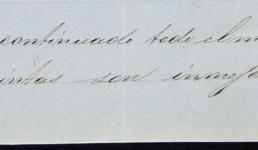 continuado todo el m
intas son inmejo